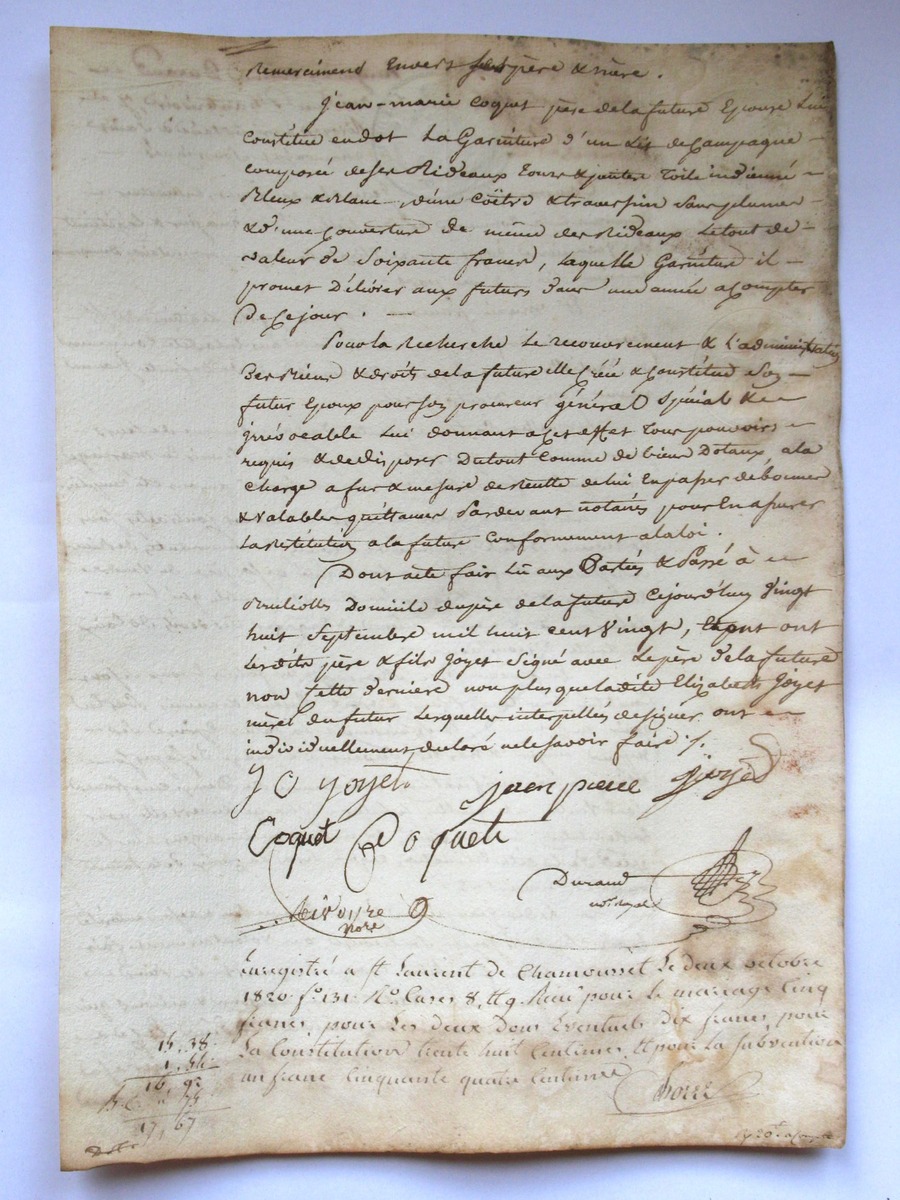 Remerciment Envers ses père & mère.
Jean-marie Coquet père de la future Epouse Lui
Constitue en dot La Garniture d'un Lit de Campagne
Composé de ses Rideaux Tours & pentes Toile indienne
Bleux & Blanc, d'une Coëtre & traversin Sans plumes
& d'une Couverture de même des Rideaux Le tout de
valeur de Soixante francs, Laquelle Garniture il
promet Délivrer aux futurs dans une année a Compter
De Ce jour.
Pour la Recherche Le recouvrement & L'administration
Des Biens & droits de la future elle Créé & Constitue Son
futur Epoux pour Son procureur général Spécial &
irrévocable Lui donnant a Cet effet Tous pouvoirs
requis & de disposer Du tout Comme de biens Dotaux, a la
Charge a fur & mesure de recette de lui En passer de bonnes
& Valables quittances Pardevant notaires pour En assurer
La restitution a la future Conformement a la loi.
Dont acte fait Lu aux Parties & Passé à
Domicile du père de la future Cejourd'huy Vingt
huit Septembre mil huit Cent Vingt, ont
Lesdits père & fils Joyet Signé avec Le père de la future
non Cette dernière non plus que ladite Elizabeth Joyet
mère du futur Lesquelles interpellés de signer ont
individuellement déclaré ne le Savoir faire ./.
J O Joyet jean pierre joyet
Coquet Coquet
Durand
not. royal
Enregistré a St Laurent de Chamousset Le deux octobre
1820 fo. 131 Ro. Cases 8, & 9. Reçu pour Le mariage Cinq
francs, pour Les deux Dons Eventuels Dix francs, pour
La Constitution trente huit Centimes, & pour La Subvention
un franc Cinquante quatre Centimes
15,38.
1,54.
16,92
75
17,67